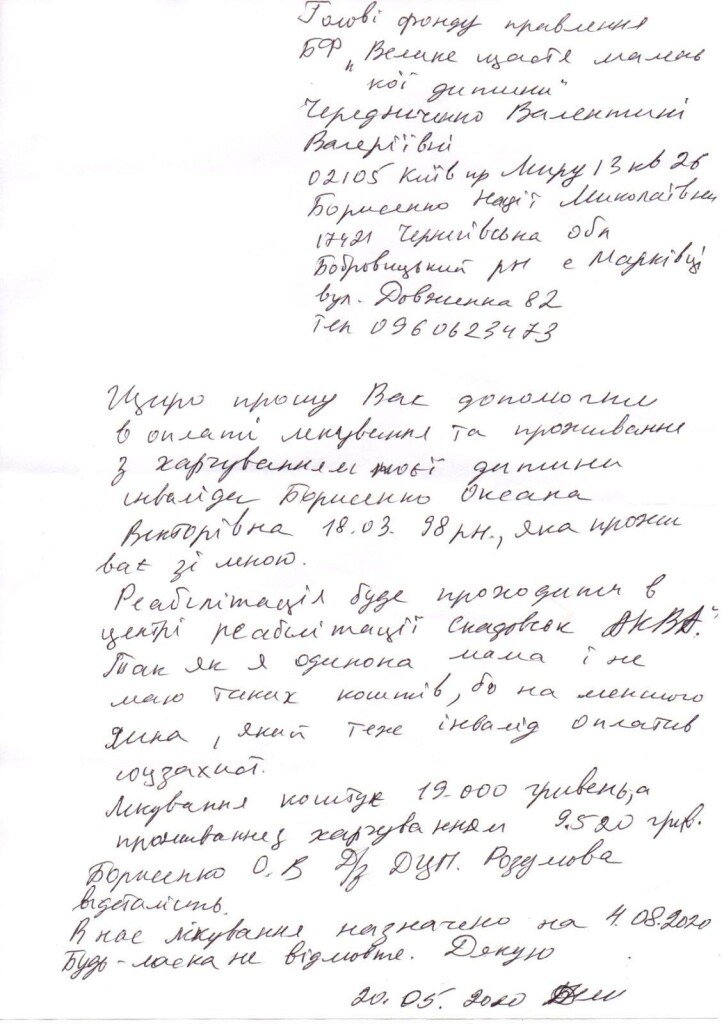 Голові фонду правління
БФ „Велике щастя малень
кої дитини"
Чередніченко Валентині
Валеріївні
02105 Київ пр Миру 13 кв 26
Борисенко Надії Миколаївни
17421 Чернігівська обл
Бобровицький рн с Марківці
вул. Довженка 82
тел 0960623473
Щиро прошу Вас допомогти
в оплаті лікування та проживання
з харчуванням моєї дитини
інваліда Борисенко Оксана
Вікторівна 18.03. 98 рн., яка прожи
ває зі мною.
Реабілітація буде проходити в
центрі реабілітації Скадовськ АКВА."
Так як я одинока мама і не
маю таких коштів, бо на меншого
сина, який теж інвалід оплатив
соцзахист.
Лікування коштує 19-000 гривень, а
проживання з харчуванням 9.520 грив.
Борисенко О.В Д/з ДЦП. Розумова
відсталість.
В нас лікування назначено на 4.08.2020
Будь-ласка не відмовте. Дякую
20.05.2020